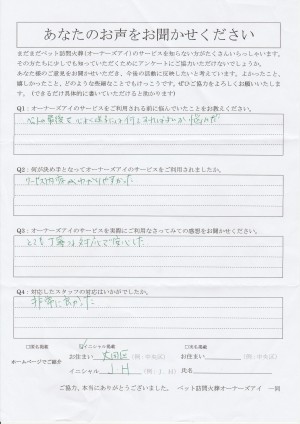 あなたのお声をお聞かせください
まだまだペット訪問火葬(オーナーズアイ)のサービスを知らない方がたくさんいらっしゃいます。
その方たちに少しでも知っていただくためにアンケートにご協力いただけないでしょうか。
あなた様のご意見をお聞かせいただき、今後の活動に反映したいと考えています。よかったこと、
嬉しかったこと、どのような些細なことでもけっこうです。ぜひご協力をよろしくお願いいたしま
す。(できるだけ具体的に書いていただけると助かります)
Q1:オーナーズアイのサービスをご利用される前に悩んでいたことをお教えください。
Q2:何が決め手となってオーナーズアイのサービスをご利用されましたか。
サービス内容がわかりやすかった
Q3:オーナーズアイのサービスを実際にご利用なさってみての感想をお聞かせください。
とても丁寧な対応で安心した
Q4:対応したスタッフの対応はいかがでしたか。
非常に良かった
□実名掲載 ☑イニシャル掲載 □匿名掲載
ホームページでご紹介
お住まい 大田区 (例:中央区) お住まい (例:中央区)
イニシャル J.H (例:J.H) 氏名
ご協力、本当にありがとうございました。 ペット訪問火葬オーナーズアイ 一同